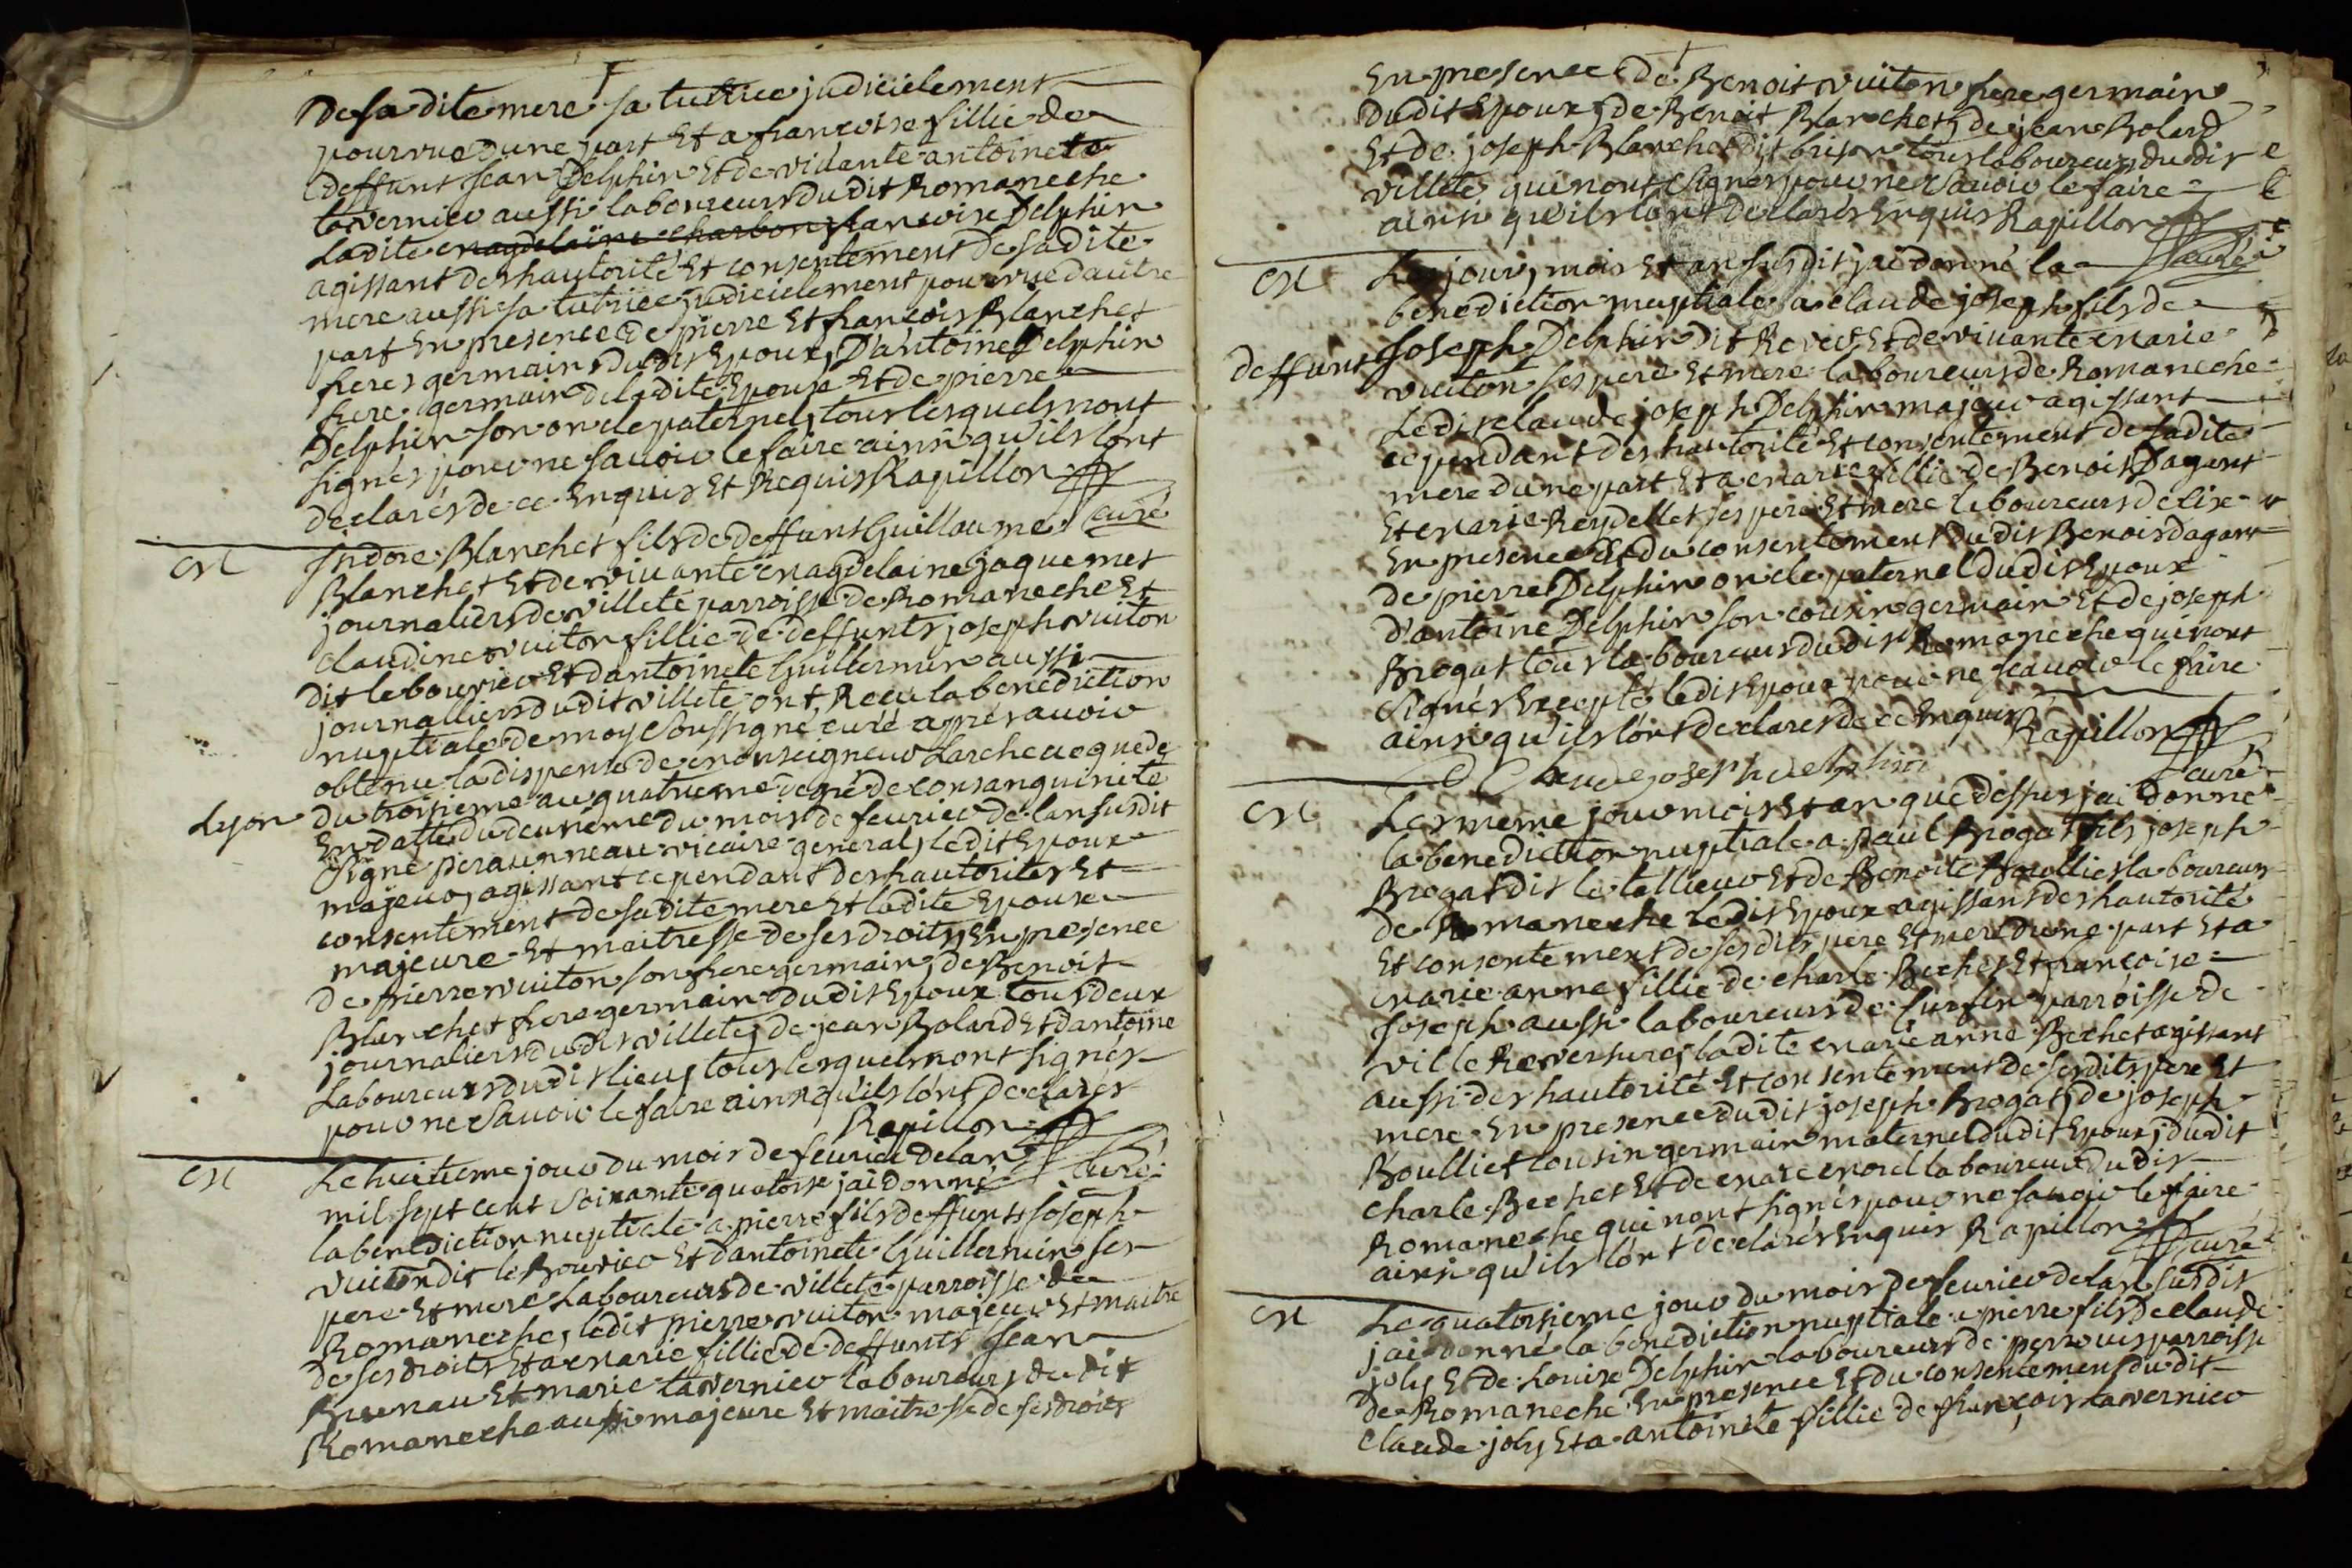 De sa dite mere sa tutrice judicielement
pourvue dune part Et a francoise fillie de
deffunt Jean Delphin Et de vivante antoinete
tavernier aussi laboureurs dudit Romaneche
Ladite magdelaine charbon francoise Delphin
agissant des hautorité Et consentement de sadite
mere aussi sa tutrice judicielement pourvue dautre
part En presence de pierre Et francois Blanchet
freres germains dudit Epoux, D'antoine Delphin
frere germain de ladite Epouse Et de pierre
Delphin son oncle paternel, tous lesquels nont
signés pour ne savoir le faire ainsi qu'ils l'ont
declarés de ce Enquis Et Requis Rapillon
curé
M Isidore Blanchet fils de deffunt Guillaume
Blanchet Et de vivante magdelaine jaquemet
journaliers de villete parroisse de Romaneche Et
Claudine vuiton fillie de deffunts joseph vuiton
dit le bouvier Et dantoinete Guillermin aussi
journalliers dudit villete ont Recu la benediction
nuptiale de moy soussigné curé apres avoir
obtenu la dispense de monseigneur Larcheveque de
Lyon du troisieme au quatrieme degré de consanguinité
En datte du deuxieme du mois de fevrier de lan susdit
Signé peraunneau vicaire general, ledit Epoux
majeur, agissant cependant des hautorités Et
consentement de sadite mere Et ladite Epouse
majeure Et maitresse de ses droits, En presence
de pierre vuiton son frere germain, de Benoit
Blanchet frere germain dudit Epoux tous deux
journaliers dudit villete, de jean Bolard Et dantoine
Laboureurs dudit lieu, tous lesquels nont signés
pour ne savoir le faire ainsi qu'ils l'ont declarés
Rapillon
curé
M Le huitieme jour du mois de fevrier de lan
mil sept cent soixante quatorse jai donné
la benediction nuptiale a pierre fils de deffunts Joseph
vuiton dit le Bouvier Et dantoinete Guillermin ses
pere Et mere Laboureurs de villete parroisse de
Romaneche, ledit pierre vuiton majeur Et maitre
de ses droits Et a marie fillie de deffunts Jean
Et marie tavernier laboureurs dudit
Romaneche aussi majeure Et maitresse de ses droits
En presence de Benoit vuiton frere germain
dudit Epoux, de Benoit Blanchet, de jean Bolard
Et de joseph Blanchet dit brison tous laboureurs dudit
villete qui nont signés pour ne savoir le faire
ainsi qu'ils l'ont declarés Enquis Rapillon
curé
M Les jour, mois Et an susdit jai donné la
benediction nuptiale a claude joseph fils de
deffunt Joseph Delphin dit Et de vivante marie
vuiton ses pere Et mere laboureurs de Romaneche
Ledit claude joseph Delphin majeur agissant
cependant des hautorité Et consentement de sadite
mere dune part Et a marie fillie de Benoit Dagent
Et marie Reydellet ses pere Et mere laboureurs de
En presence Et du consentement dudit Benoit dagent
de pierre Delphin oncle paternel dudit Epoux
d'antoine Delphin son cousin germain Et de joseph
Brogat tous laboureurs dudit Romaneche qui nont
signés Excepté ledit Epoux pour ne scavoir le faire
ainsi qu'ils l'ont declarés de ce Enquis Rapillon
Claude joseph delphin
curé
M Les meme jour mois Et an que dessus jai donné
la benediction nuptiale a paul Brogat fils joseph
Brogat dit le tallieur Et de Benoite Boulliet laboureurs
de Romaneche ledit Epoux agissant des hautorité
Et consentement de sesdits pere Et mere dune part Et a
marie anne fillie de charle Bechet Et francoise
Joseph aussi laboureurs de parroisse de
ville Reversure, ladite marie anne Bechet agissant
aussi des hautorité Et consentement de sesdits pere Et
mere En presence dudit joseph Brogat, de joseph
Boulliet cousin germain maternel dudit Epoux, dudit
charle Bechet Et de marc morel laboureur dudit
Romaneche qui nont signés pour ne savoir le faire
ainsi qu'ils l'ont declarés Enquis Rapillon
curé
M Le quatorsieme jour du mois de fevrier de lan susdit
jai donné la benediction nuptiale a pierre fils de claude
joly Et de Louise Delphin laboureurs de parroisse
de Romaneche En presence Et du consentement dudit
claude joly Et a antoinete fillie de francois tavernier